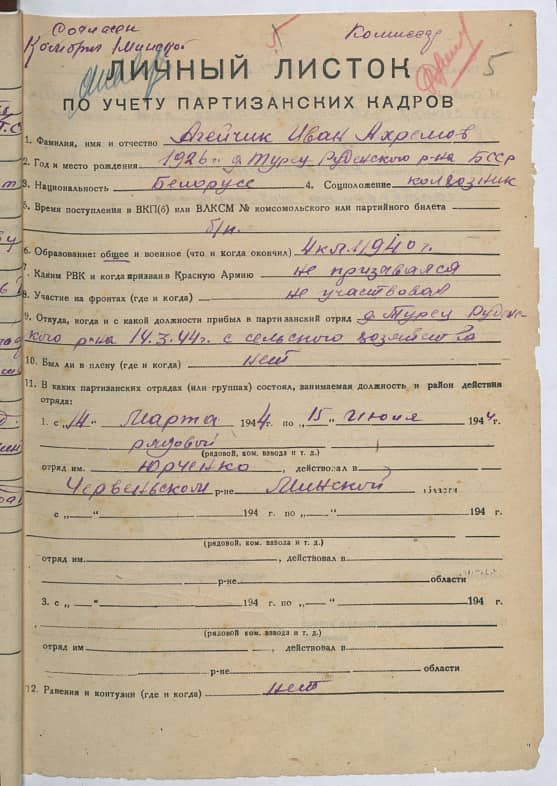 Комиссар
5
ЛИЧНЫЙ ЛИСТОК
ПО УЧЕТУ ПАРТИЗАНСКИХ КАДРОВ
1. Фамилия, имя и отчество Агейчик Иван Ахремов
2. Год и место рождения 1926 г. д. Турец Руденского р-на БССР
3. Национальность Белорусс 4. Соцположение колхозник
5. Время поступления в ВКП(б) или ВЛКСМ № комсомольского или партийного билета
б/п.
6. Образование: общее и военное (что и когда окончил) 4 кл. 1940 г.
7. Каким РВК и когда призван в Красную Армию не призывался
8. Участие на фронтах (где и когда) не участвовал
9. Откуда, когда и с какой должности прибыл в партизанский отряд д. Турец Руденс-
кого р-на 14.3.44г. с сельского хозяйства
10. Был ли в плену (где и когда) нет
11. В каких партизанских отрядах (или группах) состоял, занимаемая должность и район действия
отряда:
1. с „14" Марта 1944 г. по „15" Июня 1944 г.
рядовой
(рядовой, ком. взвода и т. д.)
отряд им. Юрченко, действовал в
Червеньском р-не Минской области
с „ —" 194 г. по „ —" 194 г.
(рядовой, ком. взвода и т. д.)
отряд им. , действовал в
р-не области
3. с „ —" 194 г. по „ —" 194 г.
(рядовой, ком. взвода и т. д.)
отряд им , действовал в
р-не области
12. Ранения и контузии (где и когда) нет